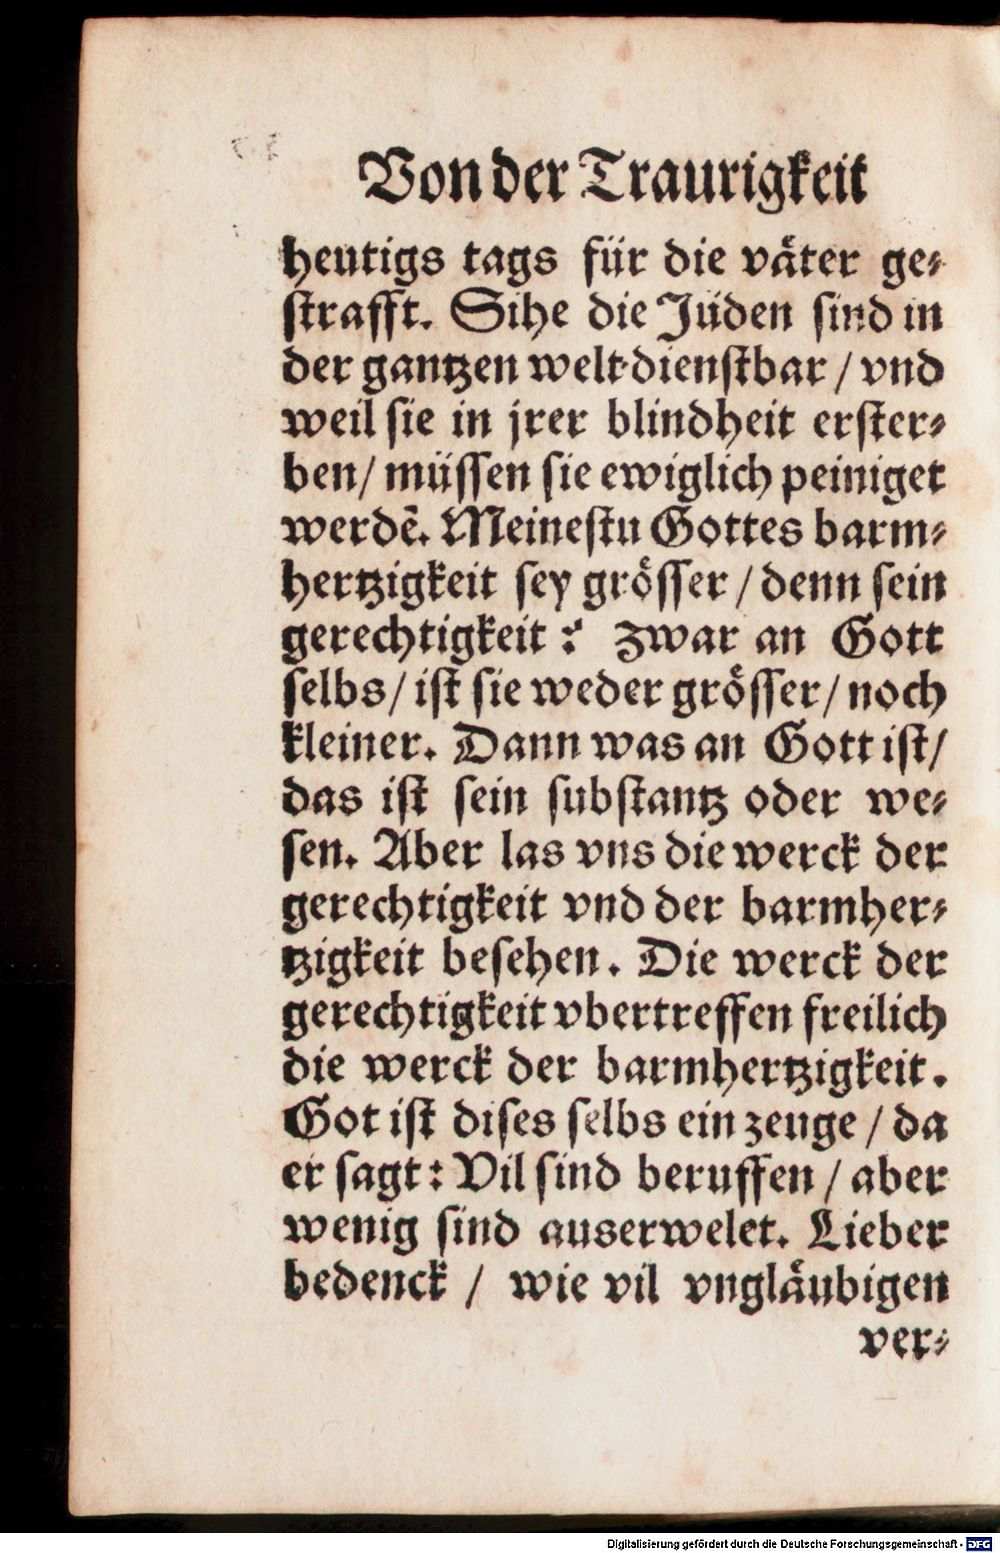 Von der Traurigkeit
heutigs tags für die väter ge⸗
strafft. Sihe die Jüden sind in
der gantzen welt dienstbar / vnd
weil sie in jrer blindheit erster⸗
ben / müssen sie ewiglich peiniget
werdē. Meinestu Gottes barm⸗
hertzigkeit sey grösser / denn sein
gerechtigkeit? zwar an Gott
selbs / ist sie weder grösser / noch
kleiner. Dann was an Gott ist /
das ist sein substantz oder we⸗
sen. Aber las vns die werck der
gerechtigkeit vnd der barmher⸗
tzigkeit besehen. Die werck der
gerechtigkeit vbertreffen freilich
die werck der barmhertzigkeit.
Got ist dises selbs ein zeuge / da
er sagt: Vil sind beruffen / aber
wenig sind auserwelet. Lieber
bedenck / wie vil vngläubigen
ver⸗
Digitalisierung gefördert durch die Deutsche Forschungsgemeinschaft - DFG